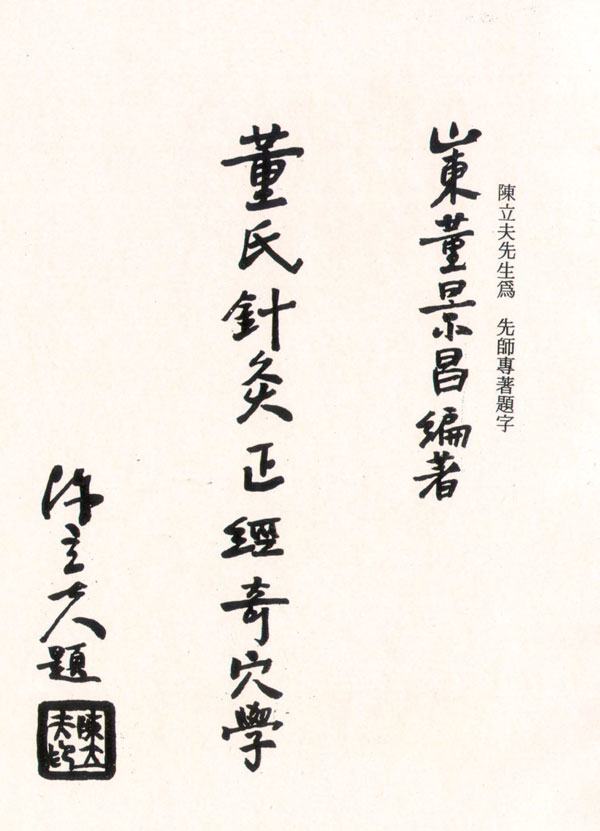 陳立夫先生爲　先師專著題字
山東董景昌編著
董氏針灸正經奇穴學
陳立夫題